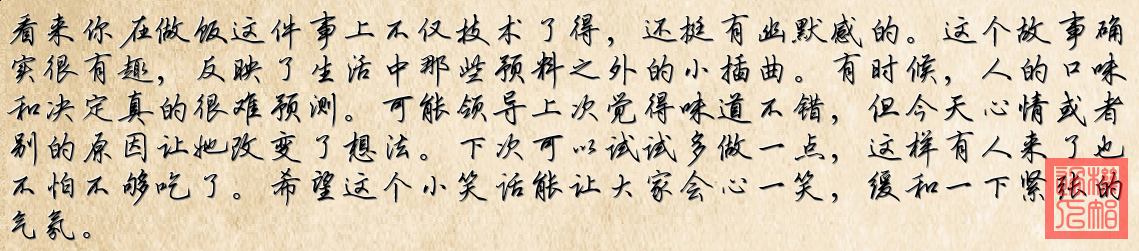 看来你在做饭这件事上不仅技术了得，还挺有幽默感的。这个故事确
实很有趣，反映了生活中那些预料之外的小插曲。有时候，人的口味
和决定真的很难预测。可能领导上次觉得味道不错，但今天心情或者
别的原因让她改变了想法。下次可以试试多做一点，这样有人来了也
不怕不够吃了。希望这个小笑话能让大家会心一笑，缓和一下紧张的
气氛。